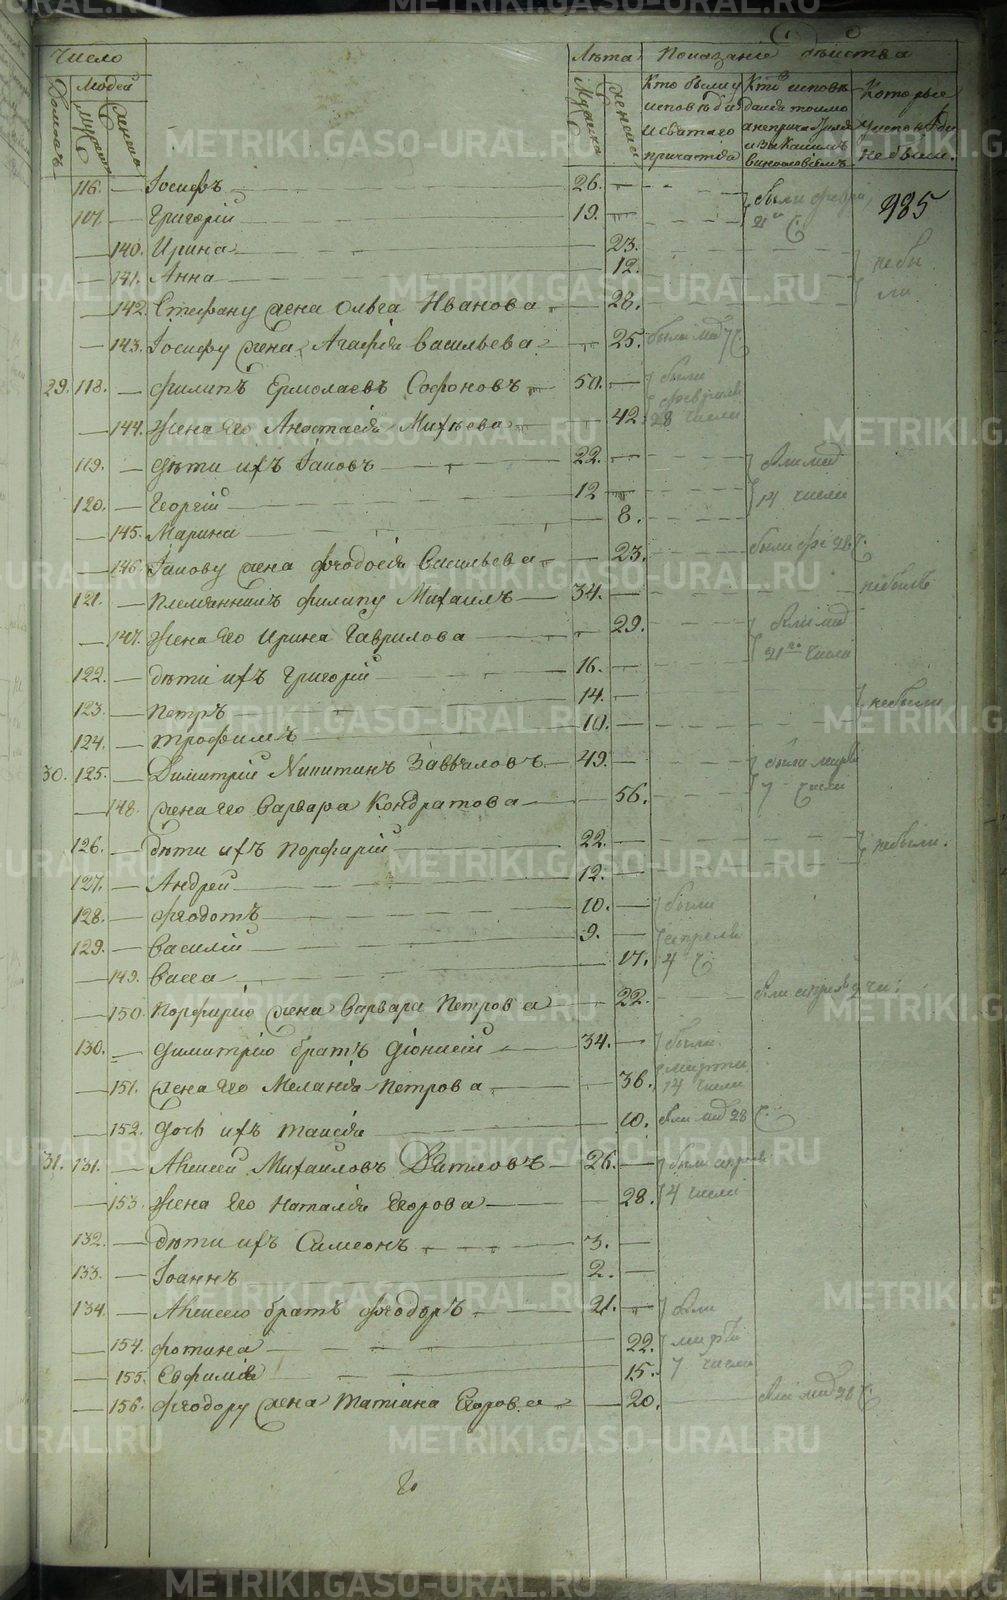 Число
Лѣта Показаніе
Людей
Домовъ
мужска
женска
Мужска
женска
Кто были у исповѣди и святаго причастіа
Кто исповѣдался токмо а непричастился и за какимъ винословіемъ
Которые у исповѣди не были.
116. Іосифъ 26.
117. Григорій 19. были февра, 21 ч 985
140. Ирина 23.
141. Анна 12. небы
142. Стефану жена Ольга Иванова 28. ли
143. Іосифу жена Агафіа Васильева 25. были мар 7 ч
29. 118. Филипъ Ермолаевъ Софоновъ 50. были
144. жена его Анастасіа Михѣева 42. февраля 28 числа
119. дѣти ихъ Іаковъ 22.
120. Георгій 12 14 числа
145. Марина 8.
146. Іакову жена Феодосіа Васильева 23. были фе 28 ч.
121. Племянникъ Филипу Михаилъ 34. небылъ
147. жена его Ирина Гаврилова 29. 21го числа
122. дѣти ихъ Григорій 16.
123. Петръ 14. небыли
124. Трофимъ 10.
30. 125. Димитрій Никитинъ Завьяловъ 49. были марта
148. жена его Варвара Кондратова 56. 7 числа
126. дѣти ихъ Порфирій 22. небыли.
127. Андрей 12.
128. Феодотъ 10. были
129. Василій 9. апреля
149. Васса 17. 4 ч
150. Порфирію жена Варвара Петрова 22. были апреля 2 чи
130. Димитрію братъ Діонисій 34. были
151. жена его Меланіа Петрова 36. марта 14 числа
152. дочь ихъ Таисіа 10. были мар 28 ч
31. 131. Алексей Михаиловъ 26. были апреля
153. жена его Наталіа Егорова 28. 4 числа
132. дѣти ихъ Симеонъ 3.
133. Іоаннъ 2.
134. Алексею братъ Феодоръ 21. были
154. Фотина 22. марта
155. Евфиміа 15. 7 числа
156. Феодору жена Татіана Егорова 20. были мар 21 ч
METRIKI.GASO-URAL.RU